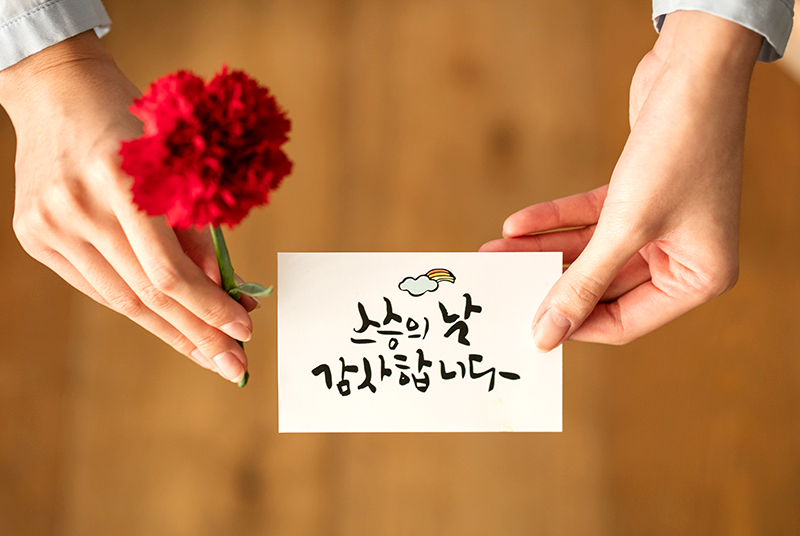 스승의 날
감사합니다